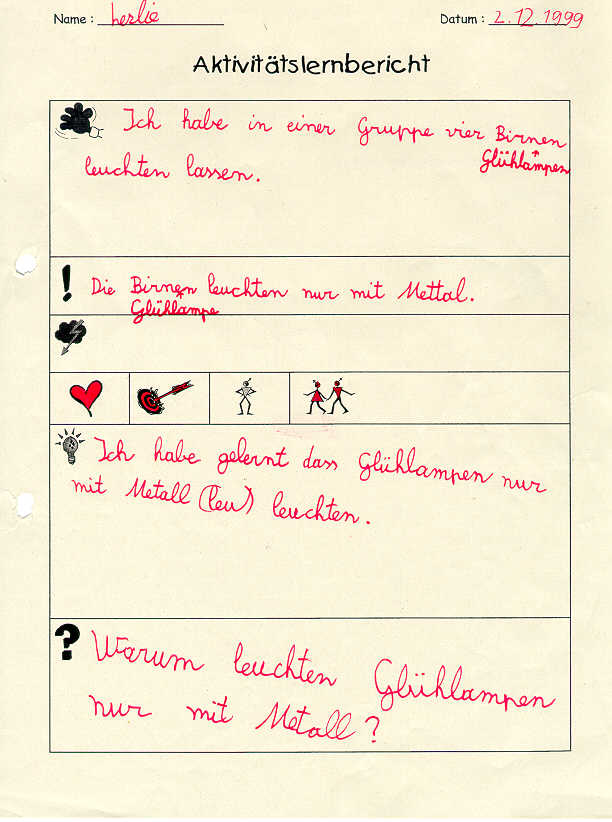 Name : Leslie Datum : 2.12.1999
Aktivitätslernbericht
Ich habe in einer Gruppe vier Birnen
Glühlampen
leuchten lassen.
! Die Birnen leuchten nur mit Mettal.
Glühlampe
Ich habe gelernt dass Glühlampen nur
mit Metall (leu) leuchten.
? Warum leuchten Glühlampen
nur mit Metall?